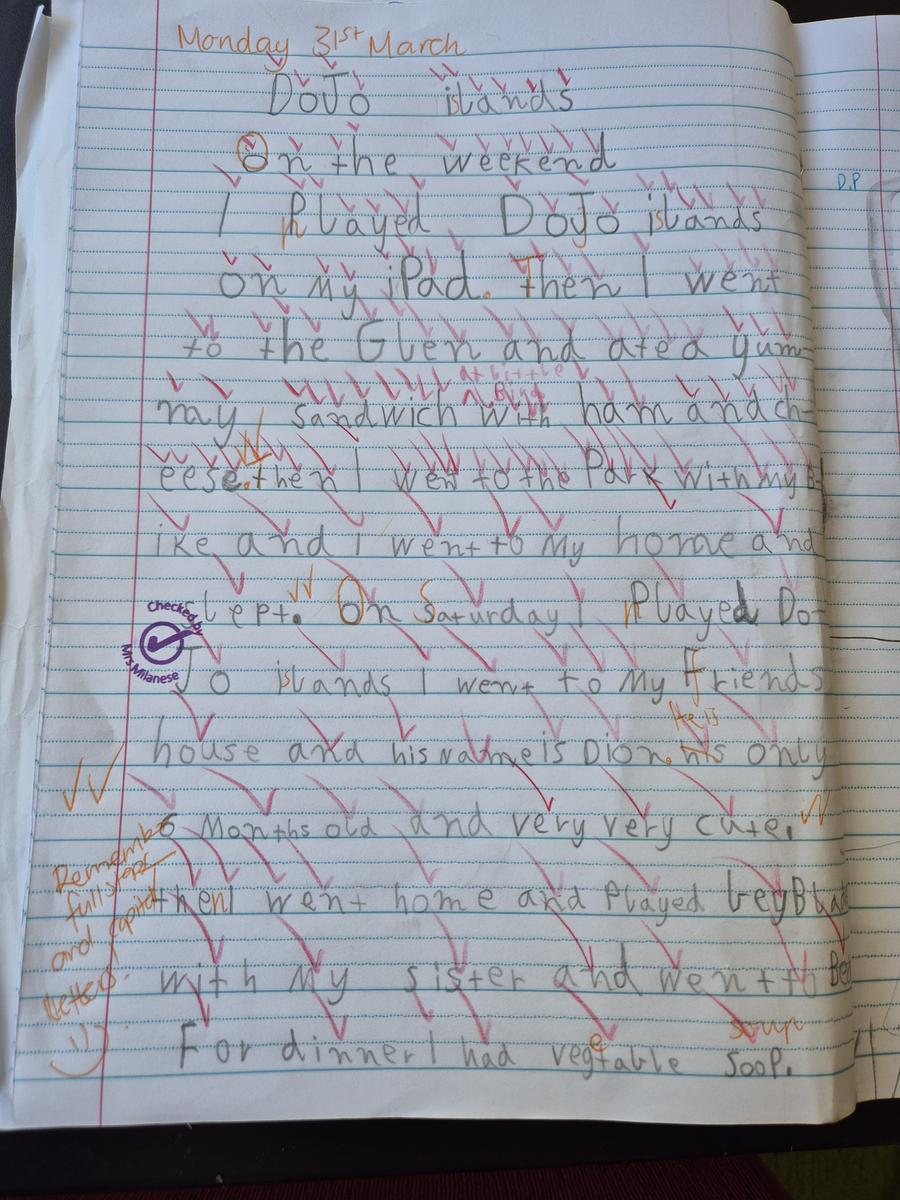 Monday 31st March
DoJo islands
On the weekend
I Played DoJo islands
D.P
on my iPad. Then I went
to the Glen and ated yum-
at bittle
may sandwich with ham and ch-
Bing
eese. then I went to the Park with my B-
ike and I went to My home and
slept. On Saturday I Played Do-
Checked by
Mrs Milanese
Jo islands I went to My Friends
He is
house and his Name is Dion. his only
6 Months old and very very cute.
Remember
full stops
and capital
letters.
then I went home and Played beyBlade
with My sister and went to Bed
soup
For dinner I had vegetable soop.